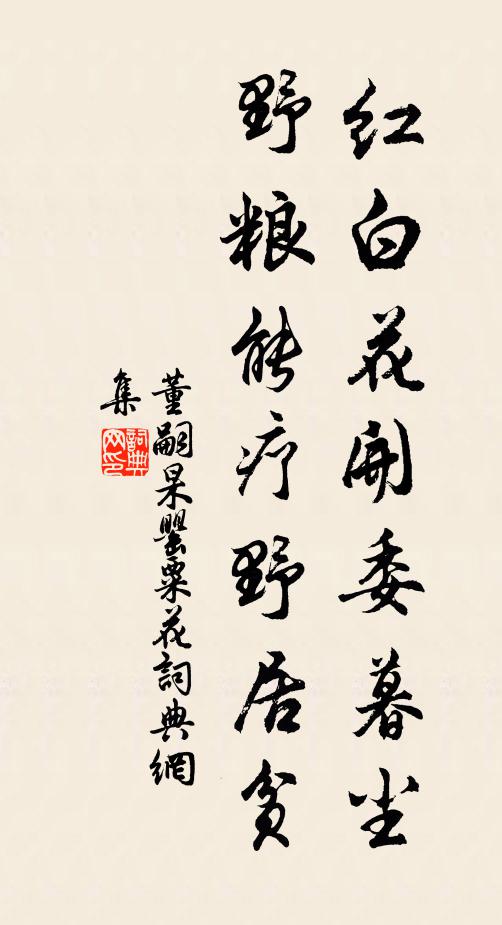 红白花开委暮尘
野粮能疗野居贫
董嗣杲罂粟花詞典網
集
詞典网印